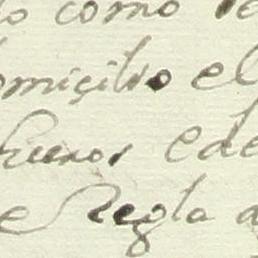 do como
omiçilio el
huenos ede
e Regla a